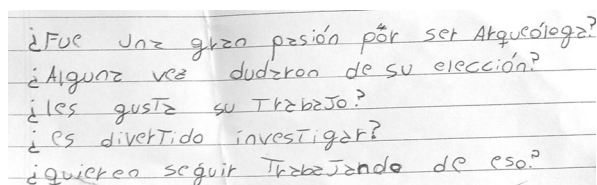 ¿Fue una gran pasión pór ser Arqueóloga?
¿Alguna vez dudaron de su elección?
¿les gusta su Trabajo?
¿es divertido investigar?
¿quieren seguir Trabajando de eso?